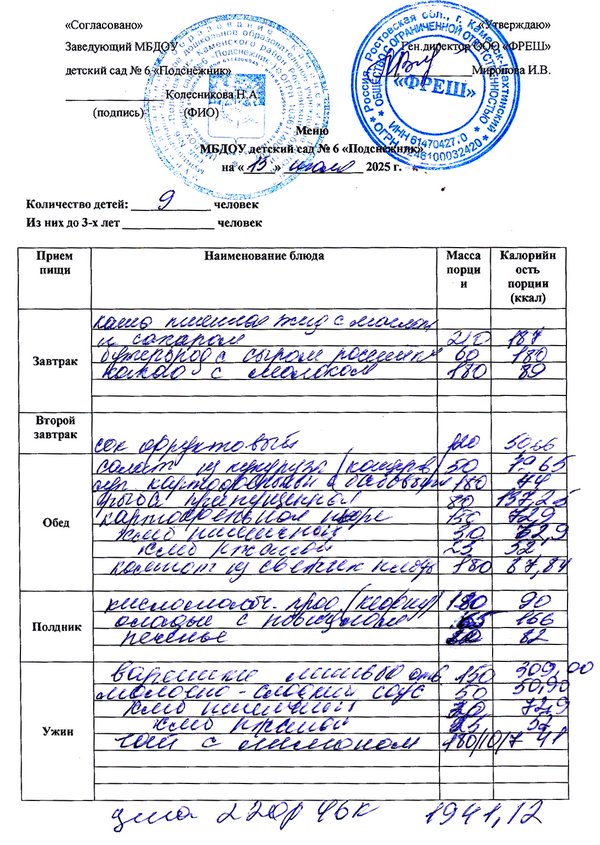 «Согласовано»
«Утверждаю»
Заведующий МБДОУ
Ген.директор ООО «ФРЕШ»
детский сад № 6 «Подснежник»
Миронова И.В.
Колесникова Н.А.
(подпись) (ФИО)
«ФРЕШ»
Меню
МБДОУ детский сад № 6 «Подснежник»
на « » 2025 г.
Количество детей: 9 человек
Из них до 3-х лет человек
Прием пищи Наименование блюда Масса порции Калорийность порции (ккал)
Завтрак
каша пшенная жид с маслом
и сахаром 210 187
бутерброд с сыром 60 180
какао с молоком 180 89
Второй завтрак
сок фруктовый
Обед
салат из кукурузы (консерв) 50
суп картофельный с бобовым 180
рыба припущенная 80 137,25
картофельное пюре
хлеб пшеничный 30 72,9
хлеб ржаной 25 52
компот из свежих плодов 180 87,84
Полдник
кисломолоч. прод (кефир) 180 90
оладьи с повидлом 166
печенье 82
Ужин
вареники ленивые отв 150 309,00
молочно-сладкий соус 50 50,90
хлеб пшеничный 72,9
хлеб ржаной 25 52
чай с лимоном 180/10/7 41
220р 46к 1941,12